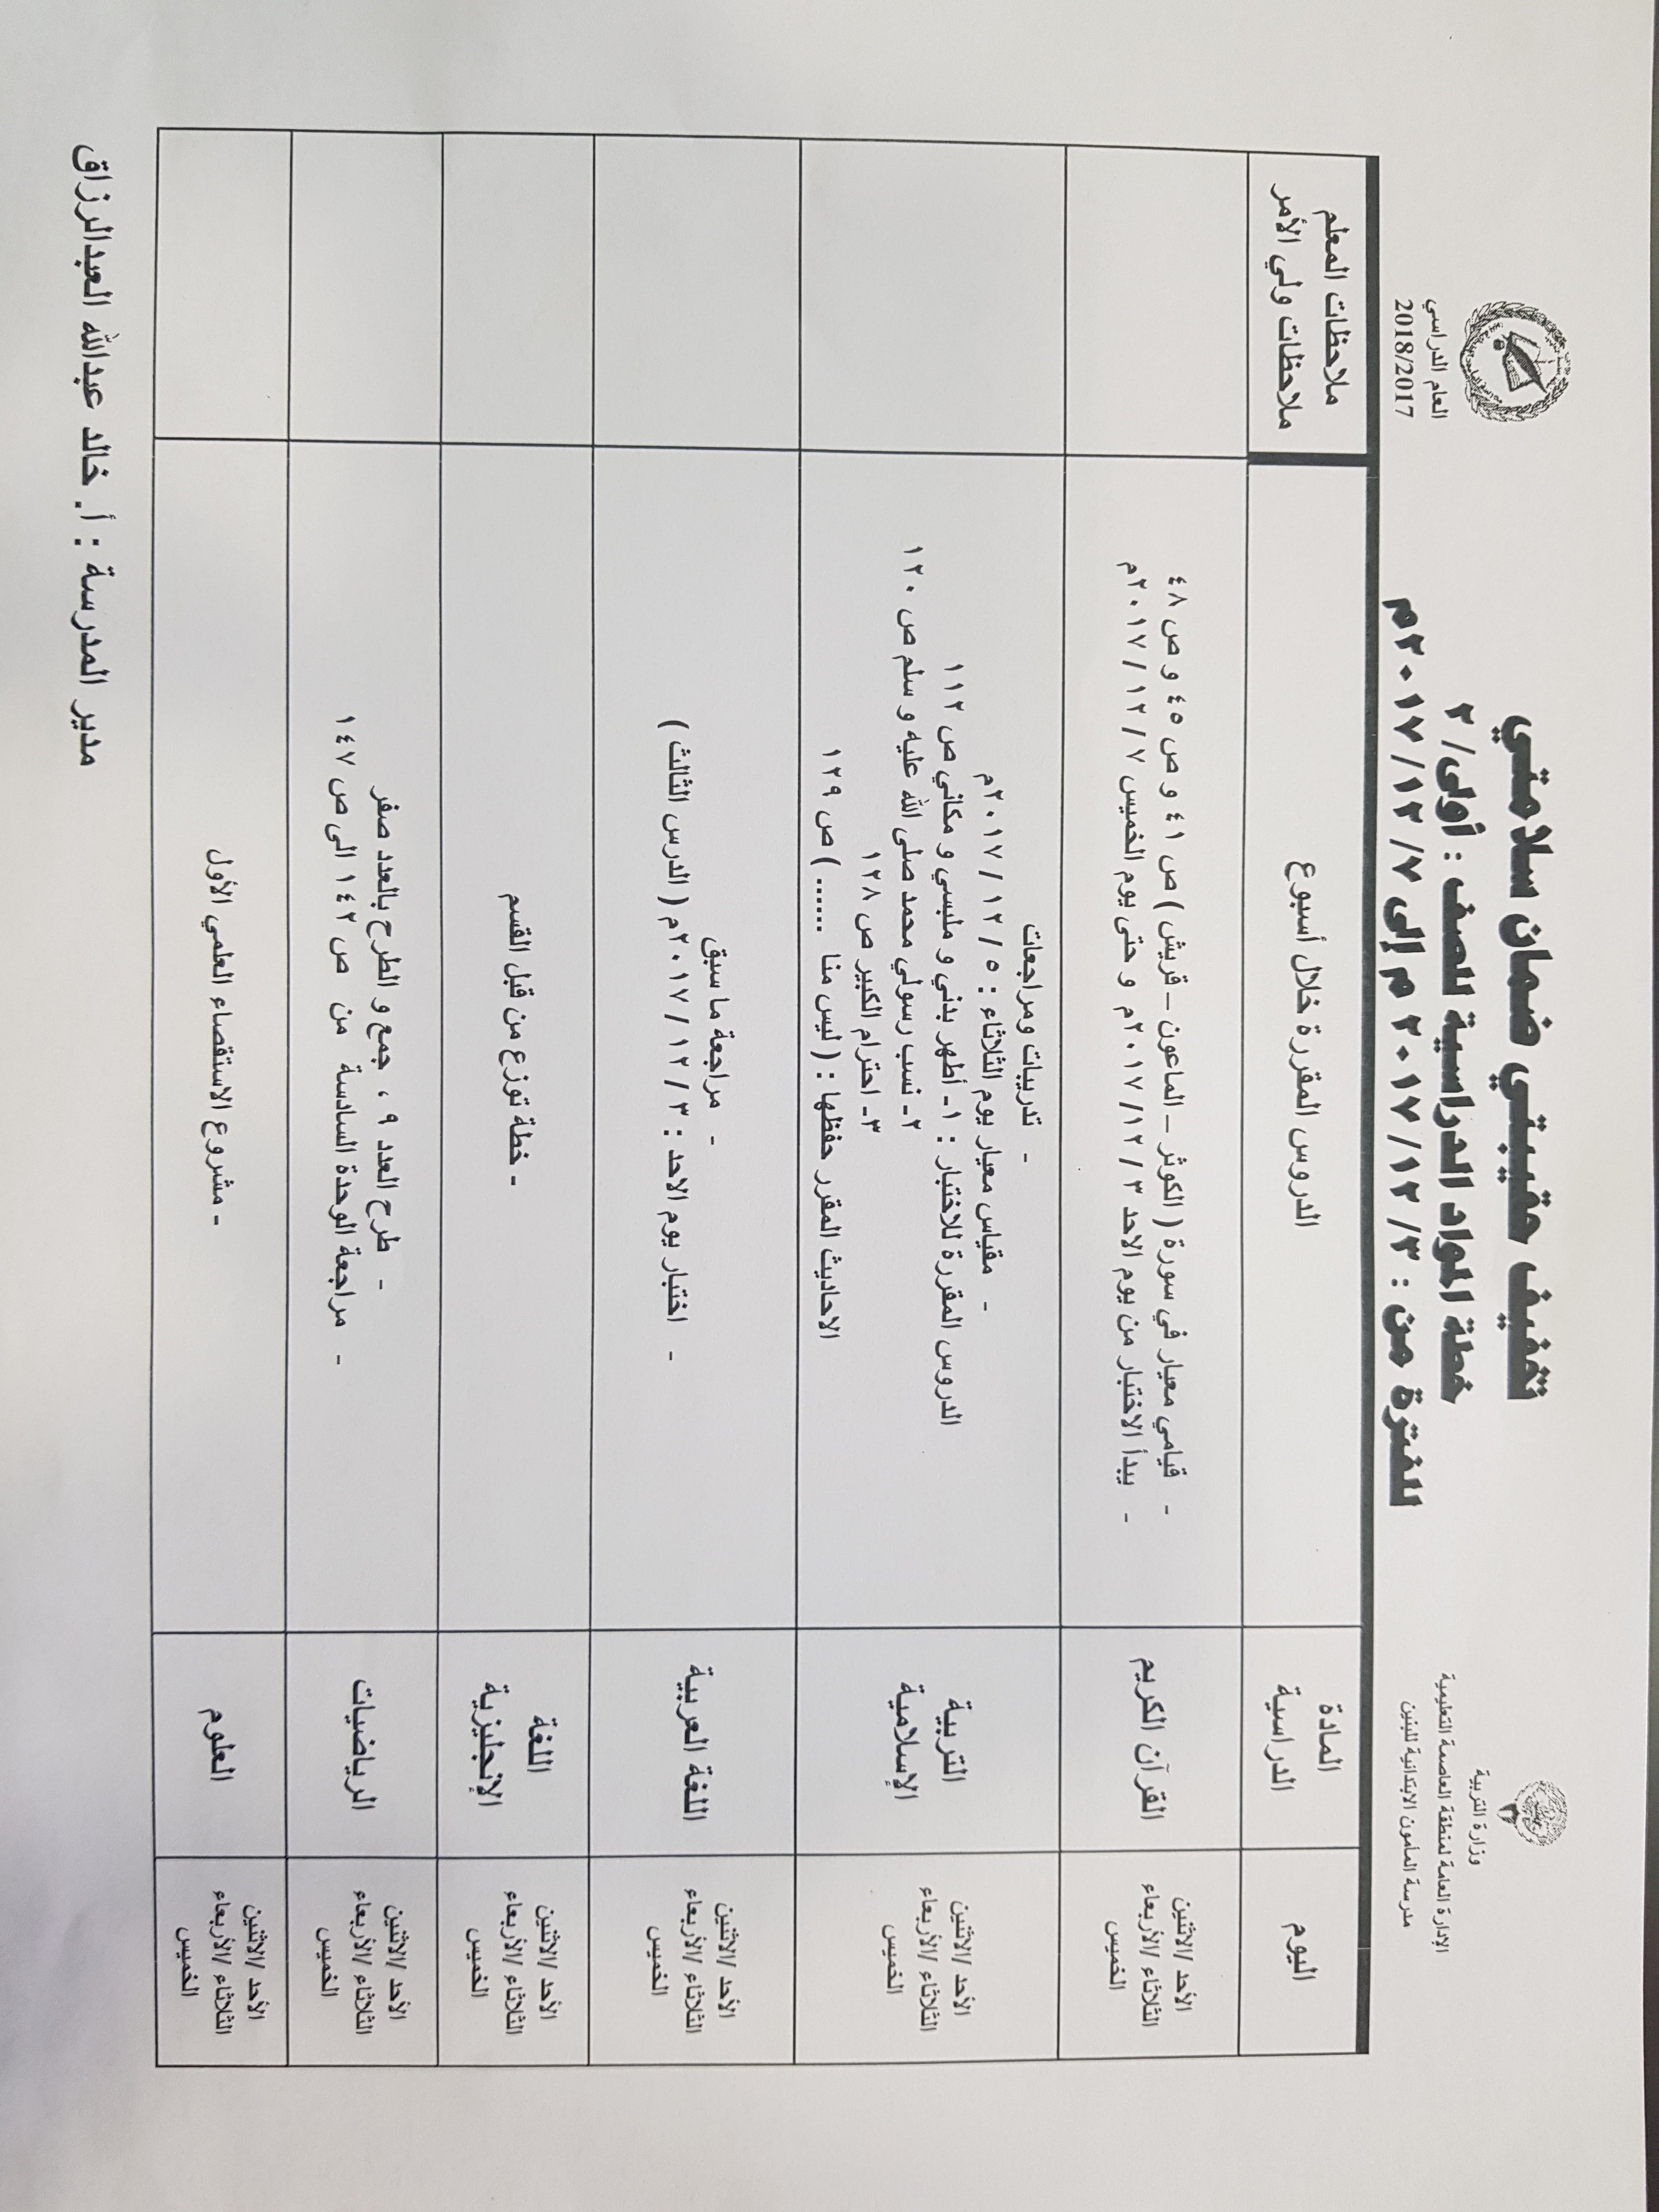 وزارة التربية
الإدارة العامة لمنطقة العاصمة التعليمية
مدرسة المأمون الابتدائية للبنين
تخفيف حقيبتي ضمان سلامتي
خطة المواد الدراسية للصف : أولى/ ٢
للفترة من : ٣/ ١٢/ ٢٠١٧ م إلى ٧/ ١٢/ ٢٠١٧م
العام الدراسي
2018/2017
اليوم
المادة
الدراسية
الدروس المقررة خلال أسبوع
ملاحظات المعلم
ملاحظات ولي الأمر
الأحد /الاثنين
الثلاثاء /الأربعاء
الخميس
القرآن الكريم
- قيامي معيار في سورة ( الكوثر – الماعون – قريش ) ص ٤١ و ص ٤٥ و ص ٤٨
- يبدأ الاختبار من يوم الاحد ٣ / ١٢/ ٢٠١٧م و حتى يوم الخميس ٧ / ١٢ / ٢٠١٧م
الأحد /الاثنين
الثلاثاء /الأربعاء
الخميس
التربية
الإسلامية
- تدريبات ومراجعات
- مقياس معيار يوم الثلاثاء : ٥ / ١٢ / ٢٠١٧م
الدروس المقررة للاختبار : ١- أطهر بدني و ملبسي و مكاني ص ١١٢
٢- نسب رسولي محمد صلى الله عليه و سلم ص ١٢٠
٣- احترام الكبير ص ١٢٨
الاحاديث المقرر حفظها : ( ليس منا ...... ) ص ١٢٩
الأحد /الاثنين
الثلاثاء /الأربعاء
الخميس
اللغة العربية
- مراجعة ما سبق
- اختبار يوم الاحد : ٣ / ١٢ / ٢٠١٧م ( الدرس الثالث )
الأحد /الاثنين
الثلاثاء /الأربعاء
الخميس
اللغة
الإنجليزية
- خطة توزع من قبل القسم
الأحد /الاثنين
الثلاثاء /الأربعاء
الخميس
الرياضيات
- طرح العدد ٩ ، جمع و الطرح بالعدد صفر
- مراجعة الوحدة السادسة من ص ١٤٢ الى ص ١٤٧
الأحد /الاثنين
الثلاثاء /الأربعاء
الخميس
العلوم
- مشروع الاستقصاء العلمي الأول
مدير المدرسة : أ. خالد عبدالله العبدالرزاق